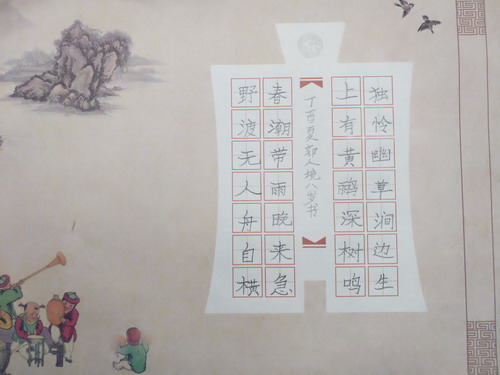 独怜幽草涧边生
上有黄鹂深树鸣
春潮带雨晚来急
野渡无人舟自横
丁酉夏郭人境八岁书